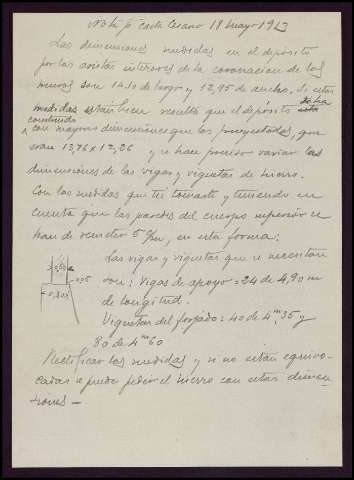 Nota p. carta Cesareo 18 mayo 1913
Las dimensiones medidas en el depósito
por las aristas interiores de la coronacion de los
muros son 14.10 de largo y 12,95 de ancho. Si estas
medidas están bien resulta que el depósito se ha
construido
con mayores dimensiones que las proyectadas, que
eran 13,76 x 12,26 y se hace preciso variar las
dimensiones de las vigas y viguetas de hierro.
Con las medidas que tu tomaste y teniendo en
cuenta que las paredes del cuerpo superior se
han de remeter 5 c/m, en esta forma:
Las vigas y viguetas que se necesitan
son: Vigas de apoyo = 24 de 4,90 m
de longitud.
Viguetas del forjado: 40 de 4,m35 y
80 de 4m60
Rectificar las medidas y si no están equivo-
cadas se puede pedir el hierro con estas dimen-
siones —